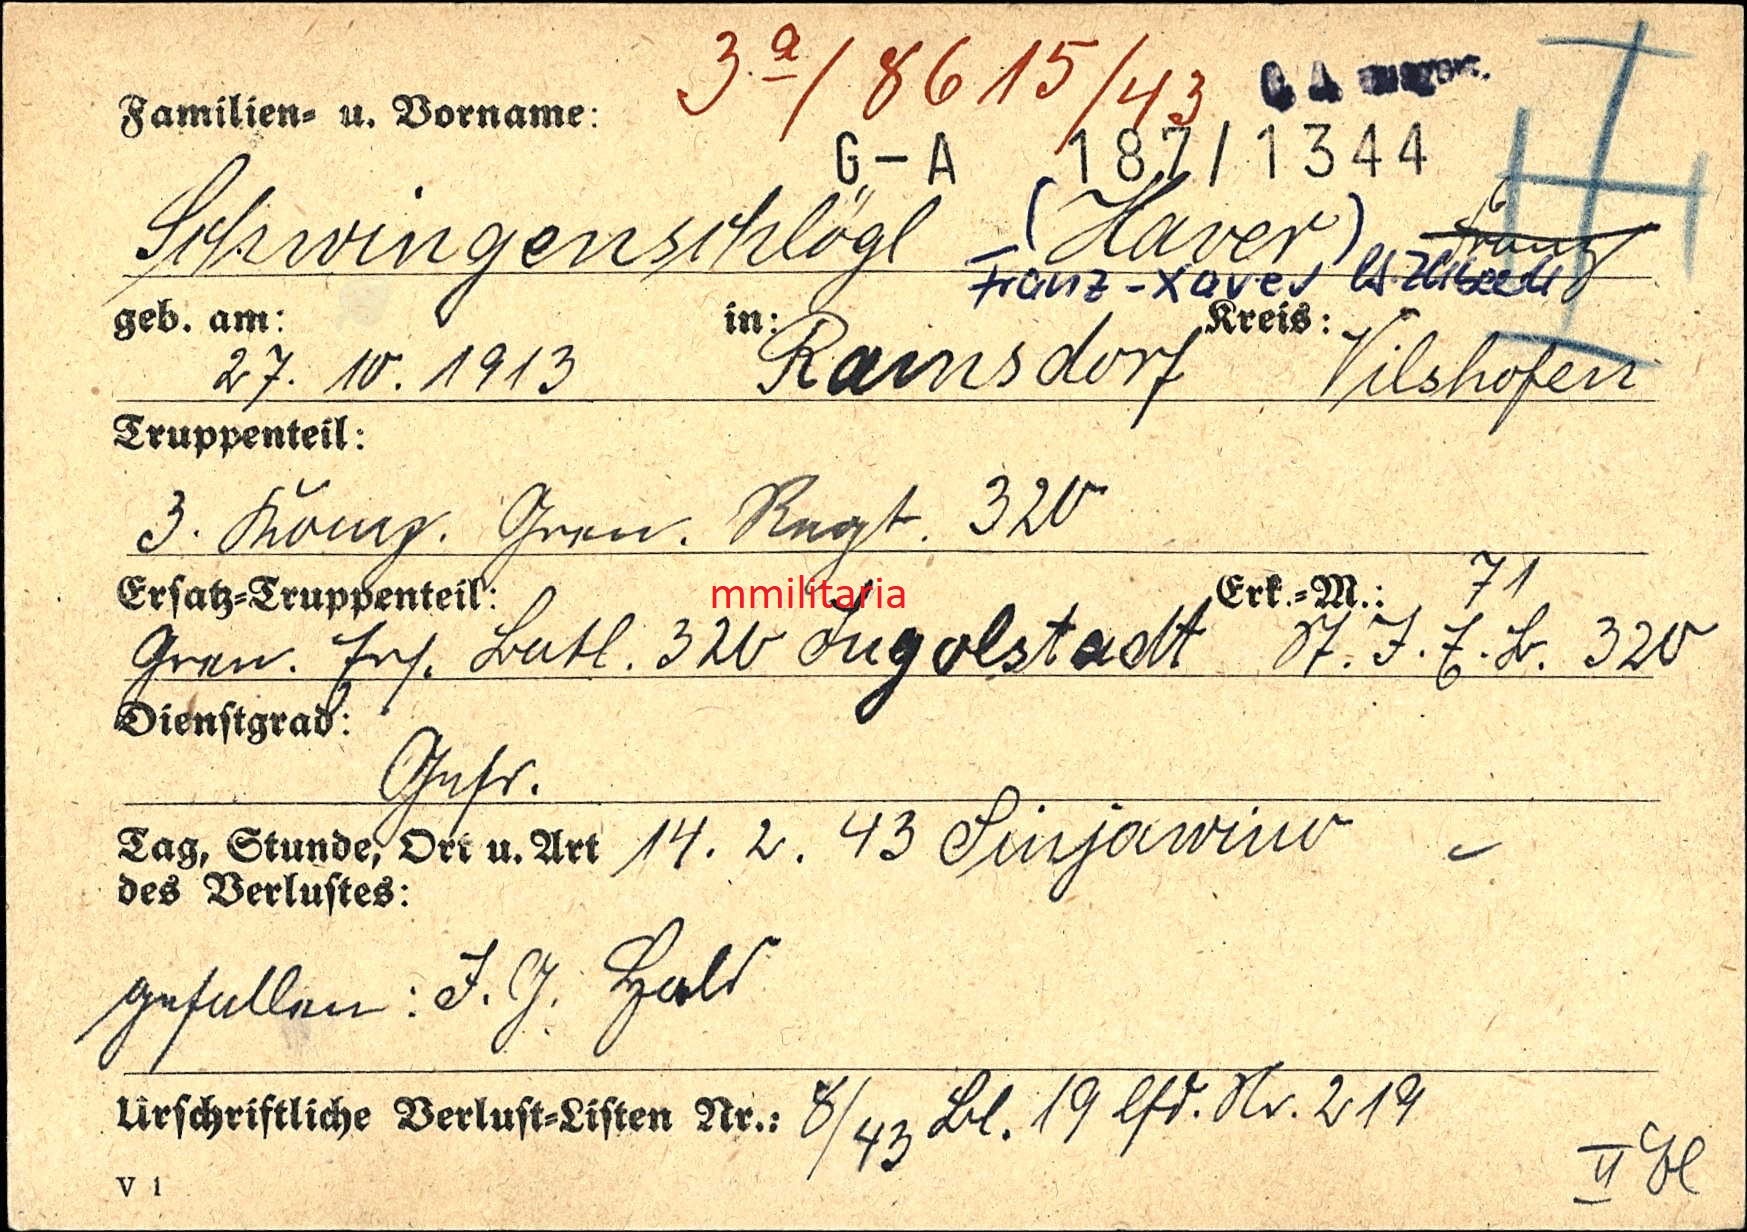 3 a/ 8615/43
Familien- u. Vorname:
G-A 187/1344
Schwingenschlögl (Xaver) Franz
Franz-Xaver lt.
geb. am: in: Kreis:
27. 10. 1913 Rainsdorf Vilshofen
Truppenteil:
3. Komp. Gren. Regt. 320
Ersatz-Truppenteil: Erk.-M.: 71
mmilitaria
Gren. Ers. Batl. 320 Ingolstadt St. I.E.B. 320
Dienstgrad:
Gefr.
Tag, Stunde, Ort u. Art 14. 2. 43 Sinjawino
des Verlustes:
gefallen: I. G. Hals
Urschriftliche Verlust-Listen Nr.: 8/43 Bl. 19 lfd. Nr. 219
V 1 II